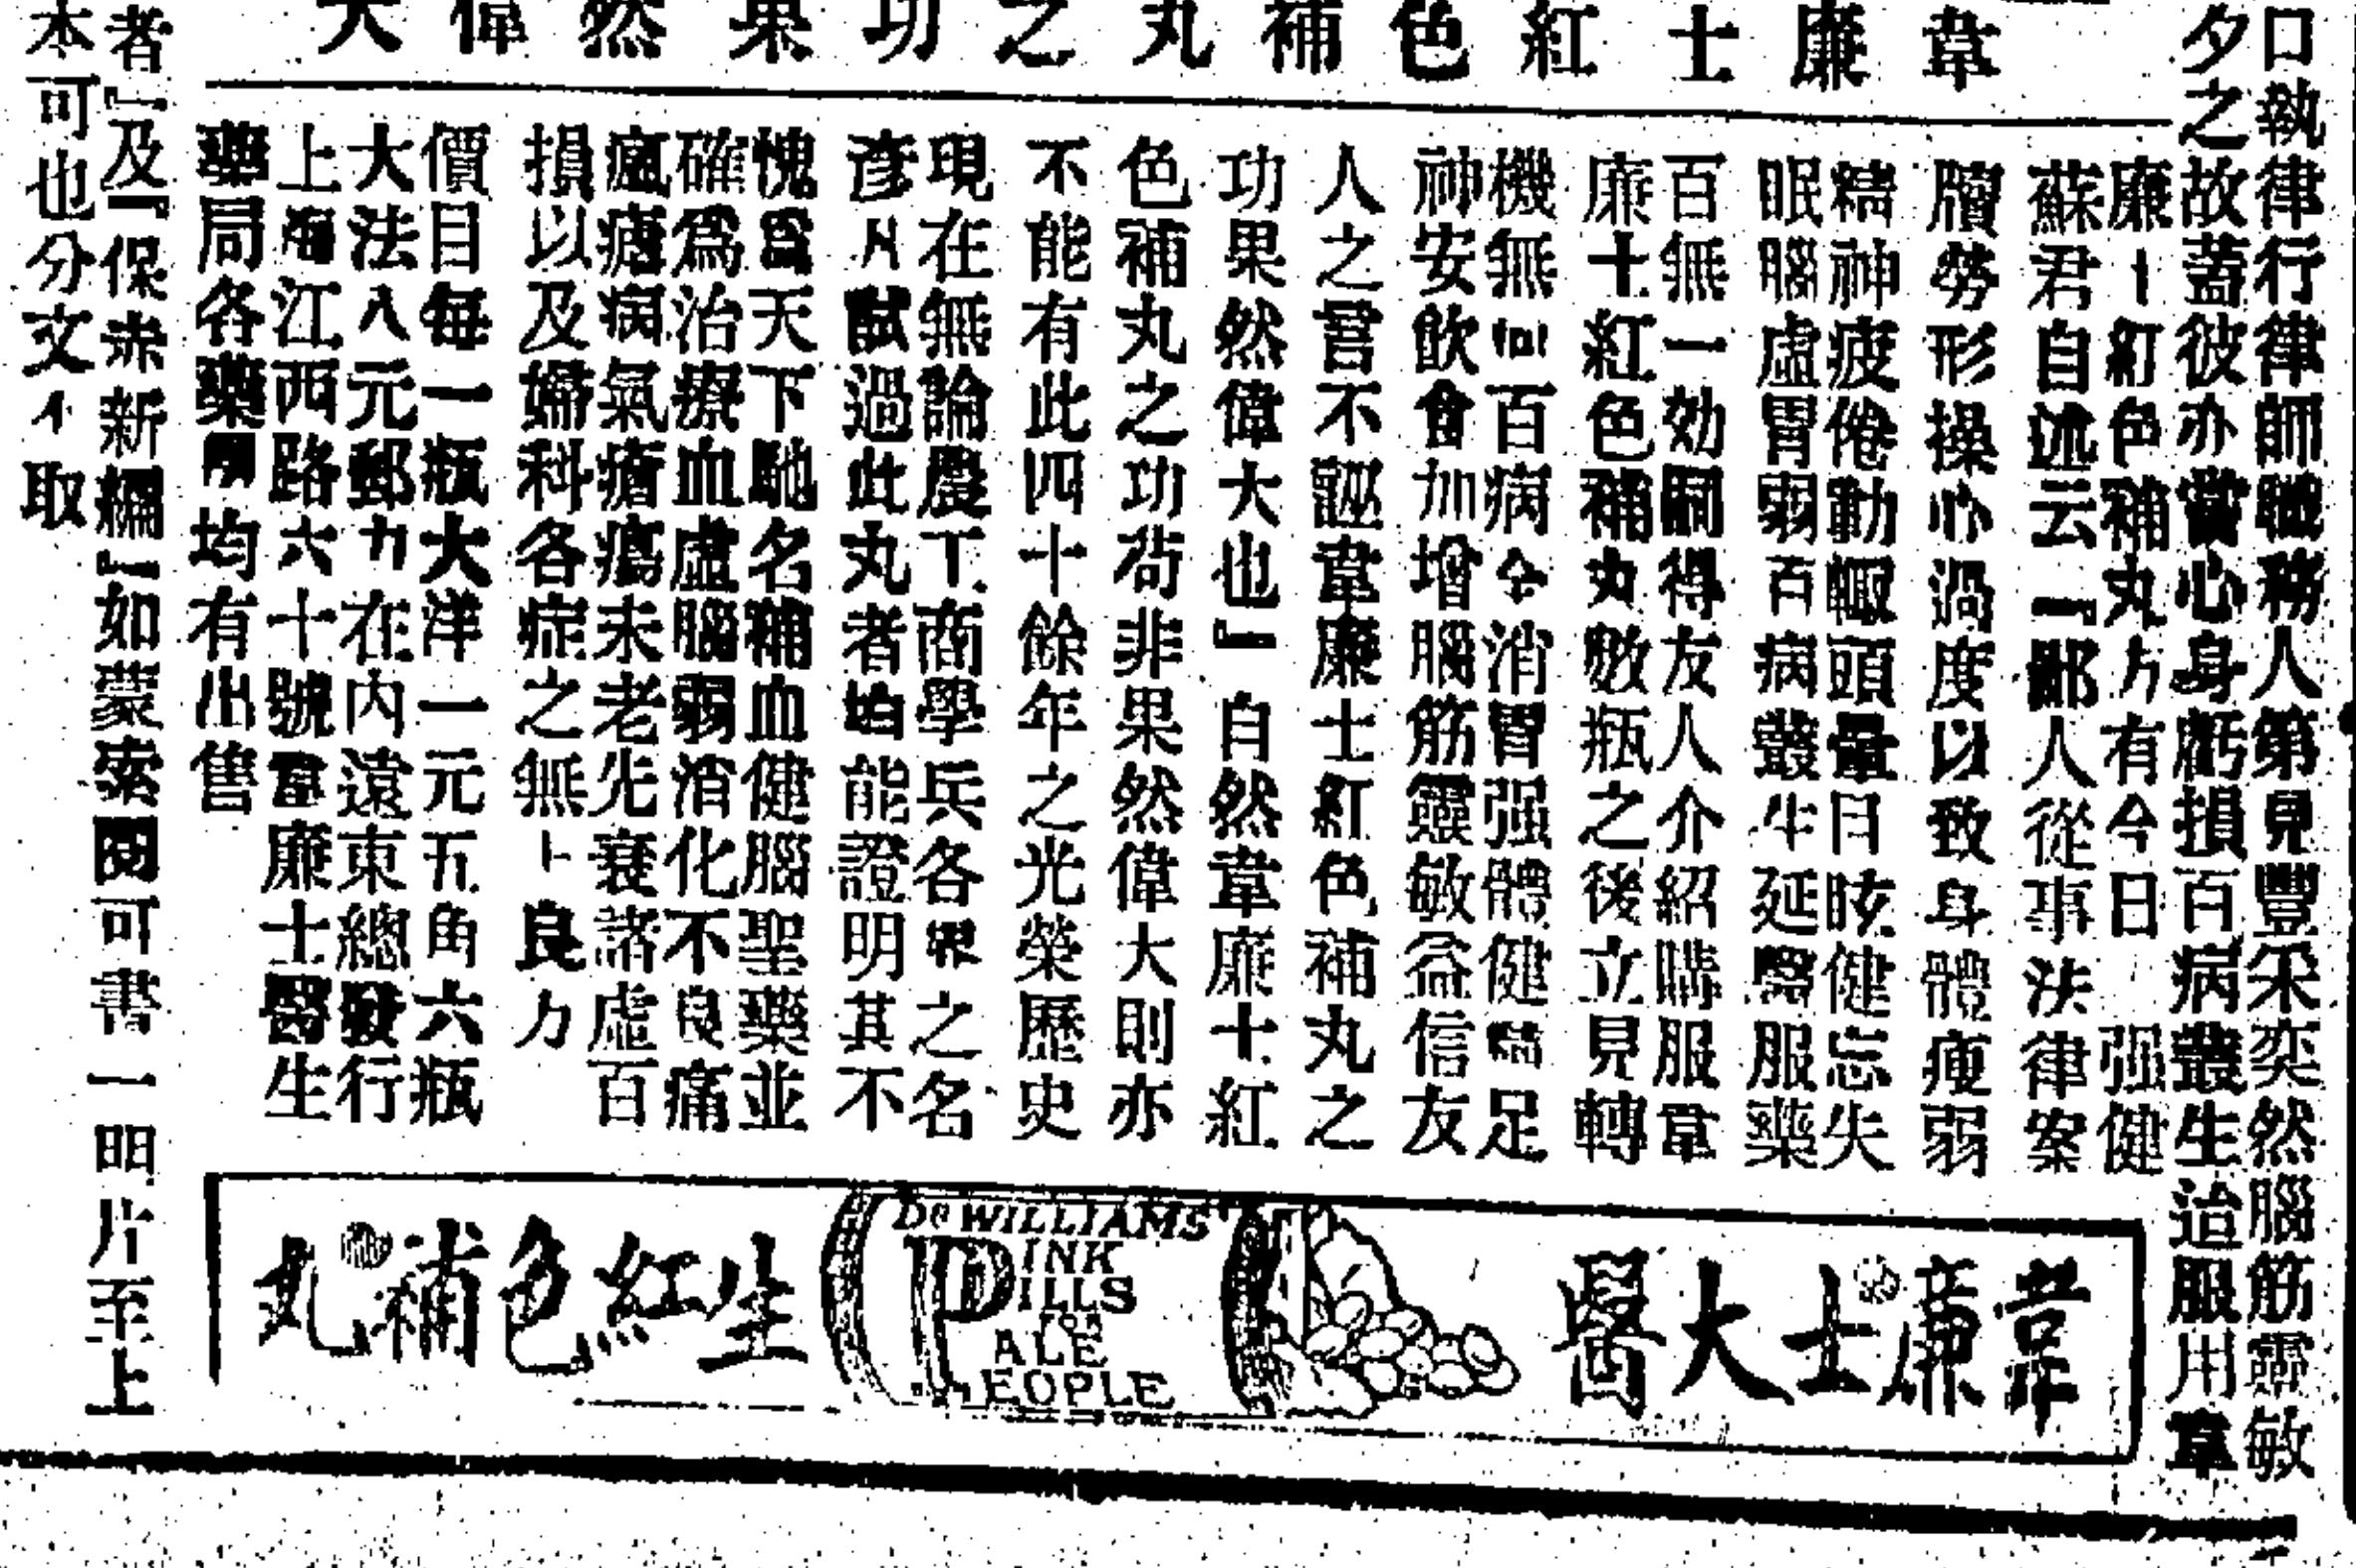 韋廉士紅色補丸之功果然偉大
口執律行律師職務人第見豐采奕然腦筋靈敏
夕之故蓋彼亦嘗心身虧損百病叢生迨服用韋
廉士紅色補丸方有今日 强健
蘇君自述云『鄙人從事法律案
牘勞形操心過度以致身體瘦弱
精神疲倦動輒頭暈目眩健忘失
眠腦虛胃弱百病叢生延醫服藥
百無一効嗣得友人介紹購服韋
廉士紅色補丸數瓶之後立見轉
機無何百病全消胃强體健精足
神安飲食加增腦筋靈敏益信友
人之言不誣韋廉士紅色補丸之
功果然偉大也』自然韋廉士紅
色補丸之功苟非果然偉大則亦
不能有此四十餘年之光榮歷史
現在無論農工商學兵各界之名
彥凡試過此丸者皆能證明其不
愧爲天下馳名補血健腦聖藥並
確爲治療血虛腦弱消化不良痛
瘋瘡病氣瘡瘍未老先衰諸虛百
損以及婦科各症之無上良力
價目每一瓶大洋一元五角六瓶
大法八元郵力在內遠東總發行
上海江西路六十號韋廉士醫生
藥局各藥房均有出售
者』及『保赤新編』如蒙索閱可書一明片至上
本可也分文不取
韋廉士大醫
生紅色補丸
Dr WILLIAMS'
PINK
PILLS
FOR
PALE
PEOPLE